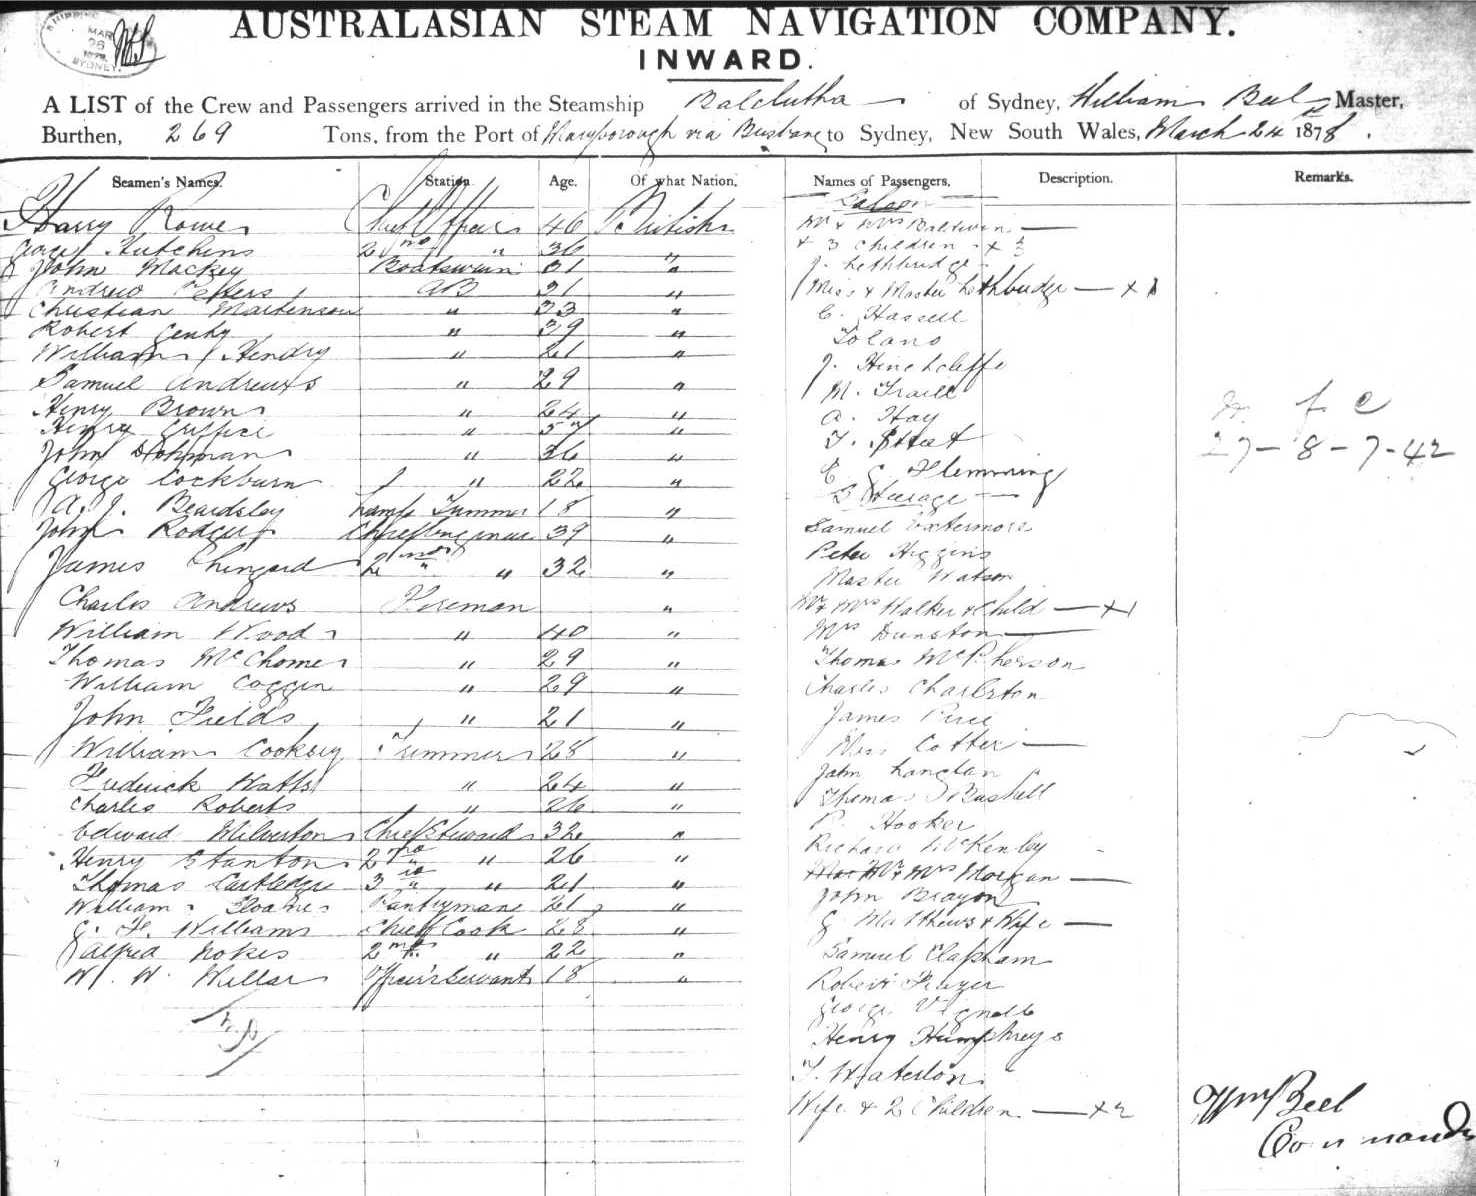 MAR
26
SYDNEY.
AUSTRALASIAN STEAM NAVIGATION COMPANY.
INWARD.
A LIST of the Crew and Passengers arrived in the Steamship Balclutha of Sydney, William Beel Master,
Burthen, 269 Tons, from the Port of Maryborough via Brisbane to Sydney, New South Wales, March 24 1878.
Seamen's Names. Station Age. Of what Nation. Names of Passengers. Description. Remarks.
Saloon
Harry Rowe Chief Officer 46 British Mr & Mrs Baldwin
George Hutchins 2nd " 36 " & 3 Children x 3
John Mackey Boatswain 31 " J. Lethbridge
Andrew Peters AB 31 " Miss & Master Lethbridge x 1
Christian Martenson " 33 " C. Hassell
Robert " 39 " Solano
William Hendry " 21 " J. Hinchcliffe
Samuel Andrews " 29 " M. Traill
Henry Brown " 24 " A. Hay
Henry " " T. Street
John " 36 " E C Flemming
George Cockburn " 22 " Steerage
A. J. Beardsley Lamp Trimmer 18 " Samuel
John Rodgers Chief Engineer 39 " Peter Higgins
James 2nd " " 32 " Master Watson
Charles Andrews Fireman " Mr & Mrs Walker & Child x 1
William Wood " 40 " Mrs Dunston
Thomas " 29 " Thomas McPherson
William Coggin " 29 " Charles Charlston
John Fields " 21 " James
William Cooksey Trimmer 28 " Miss Cotter
Frederick Watts " 24 " John Langtan
Charles Roberts " 26 " Thomas Bushell
Edward Milverton Chief Steward 32 " P. Hooker
Henry Stanton 2nd " 26 " Richard McKenley
Thomas Cartledge 3rd " " 21 " Mr & Mrs Morgan
William Pantryman 21 " John Brayon
G. H. Williams Chief Cook 28 " G Matthews & Wife
Alfred Nokes 2nd " 22 " Samuel Clapham
W. W. Willar Officer's Servant 18 " Robert Frazer
George Vignolle
Henry Humphreys
T. Waterton
Wife & 2 Children x 2
f c
27-8-7-42
Wm Beel
Commander